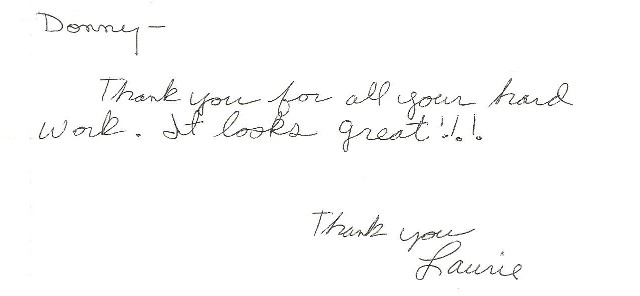 Donney—
Thank you for all your hard
work. It looks great!!!
Thank you
Laurie